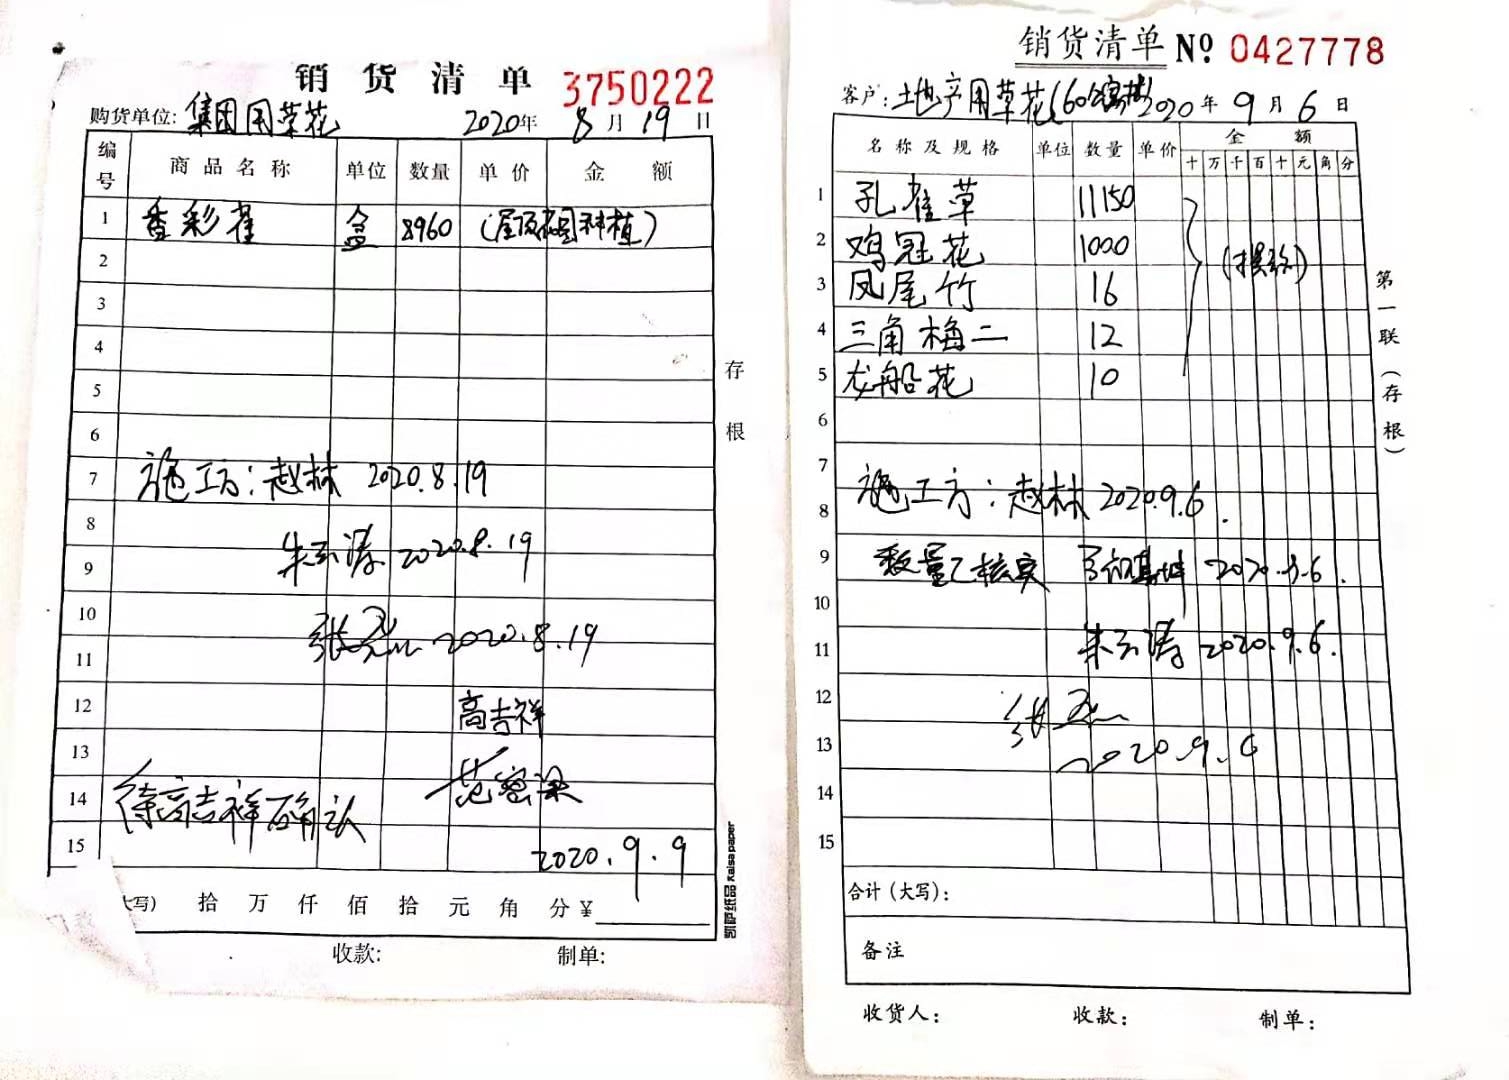 销货清单 3750222
购货单位: 集团用草花 2020年 8月 19日
编号 商品名称 单位 数量 单价 金额
1 香彩雀 盒 8960 (屋顶花园种植)
2
3
4
5
6
7 施工方: 赵林 2020.8.19
8
9 朱云涛 2020.8.19
10
11 张 2020.8.19
12 高吉祥
13
14 待高吉祥确认 范
15 2020.9.9
大写) 拾 万 仟 佰 拾 元 角 分 ¥
收款: 制单:
存根
凯萨纸品 Kaisa paper
销货清单 Nº 0427778
客户: 土地产用草花(60 2020年 9月 6日
名称及规格 单位 数量 单价 金额
十 万 千 百 十 元 角 分
1 孔雀草 11150
2 鸡冠花 1000
3 凤尾竹 16
4 三角梅二 12
5 龙船花 10
6
7
8 施工方: 赵林 2020.9.6.
9 数量已核实 2020.9.6.
10
11 朱云涛 2020.9.6.
12 张
13 2020.9.6
14
15
合计(大写):
备注
收货人: 收款: 制单:
第一联(存根)